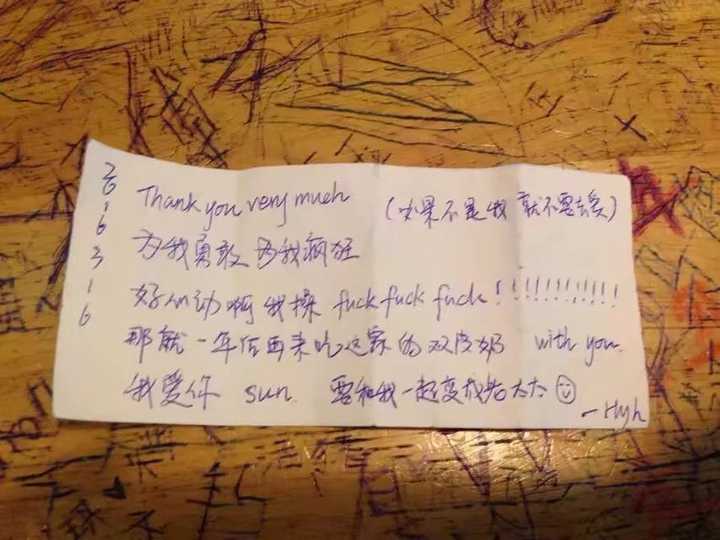 2016316
Thank you very much （如果不是我 就不要去）
为我勇敢 为我疯狂
好心动啊 我操 fuck fuck fuck!!!!!!!!!!!
那就一年后再来吃这家的双皮奶 with you.
我爱你 sun. 要和我一起变成老太太☺
—Hyh